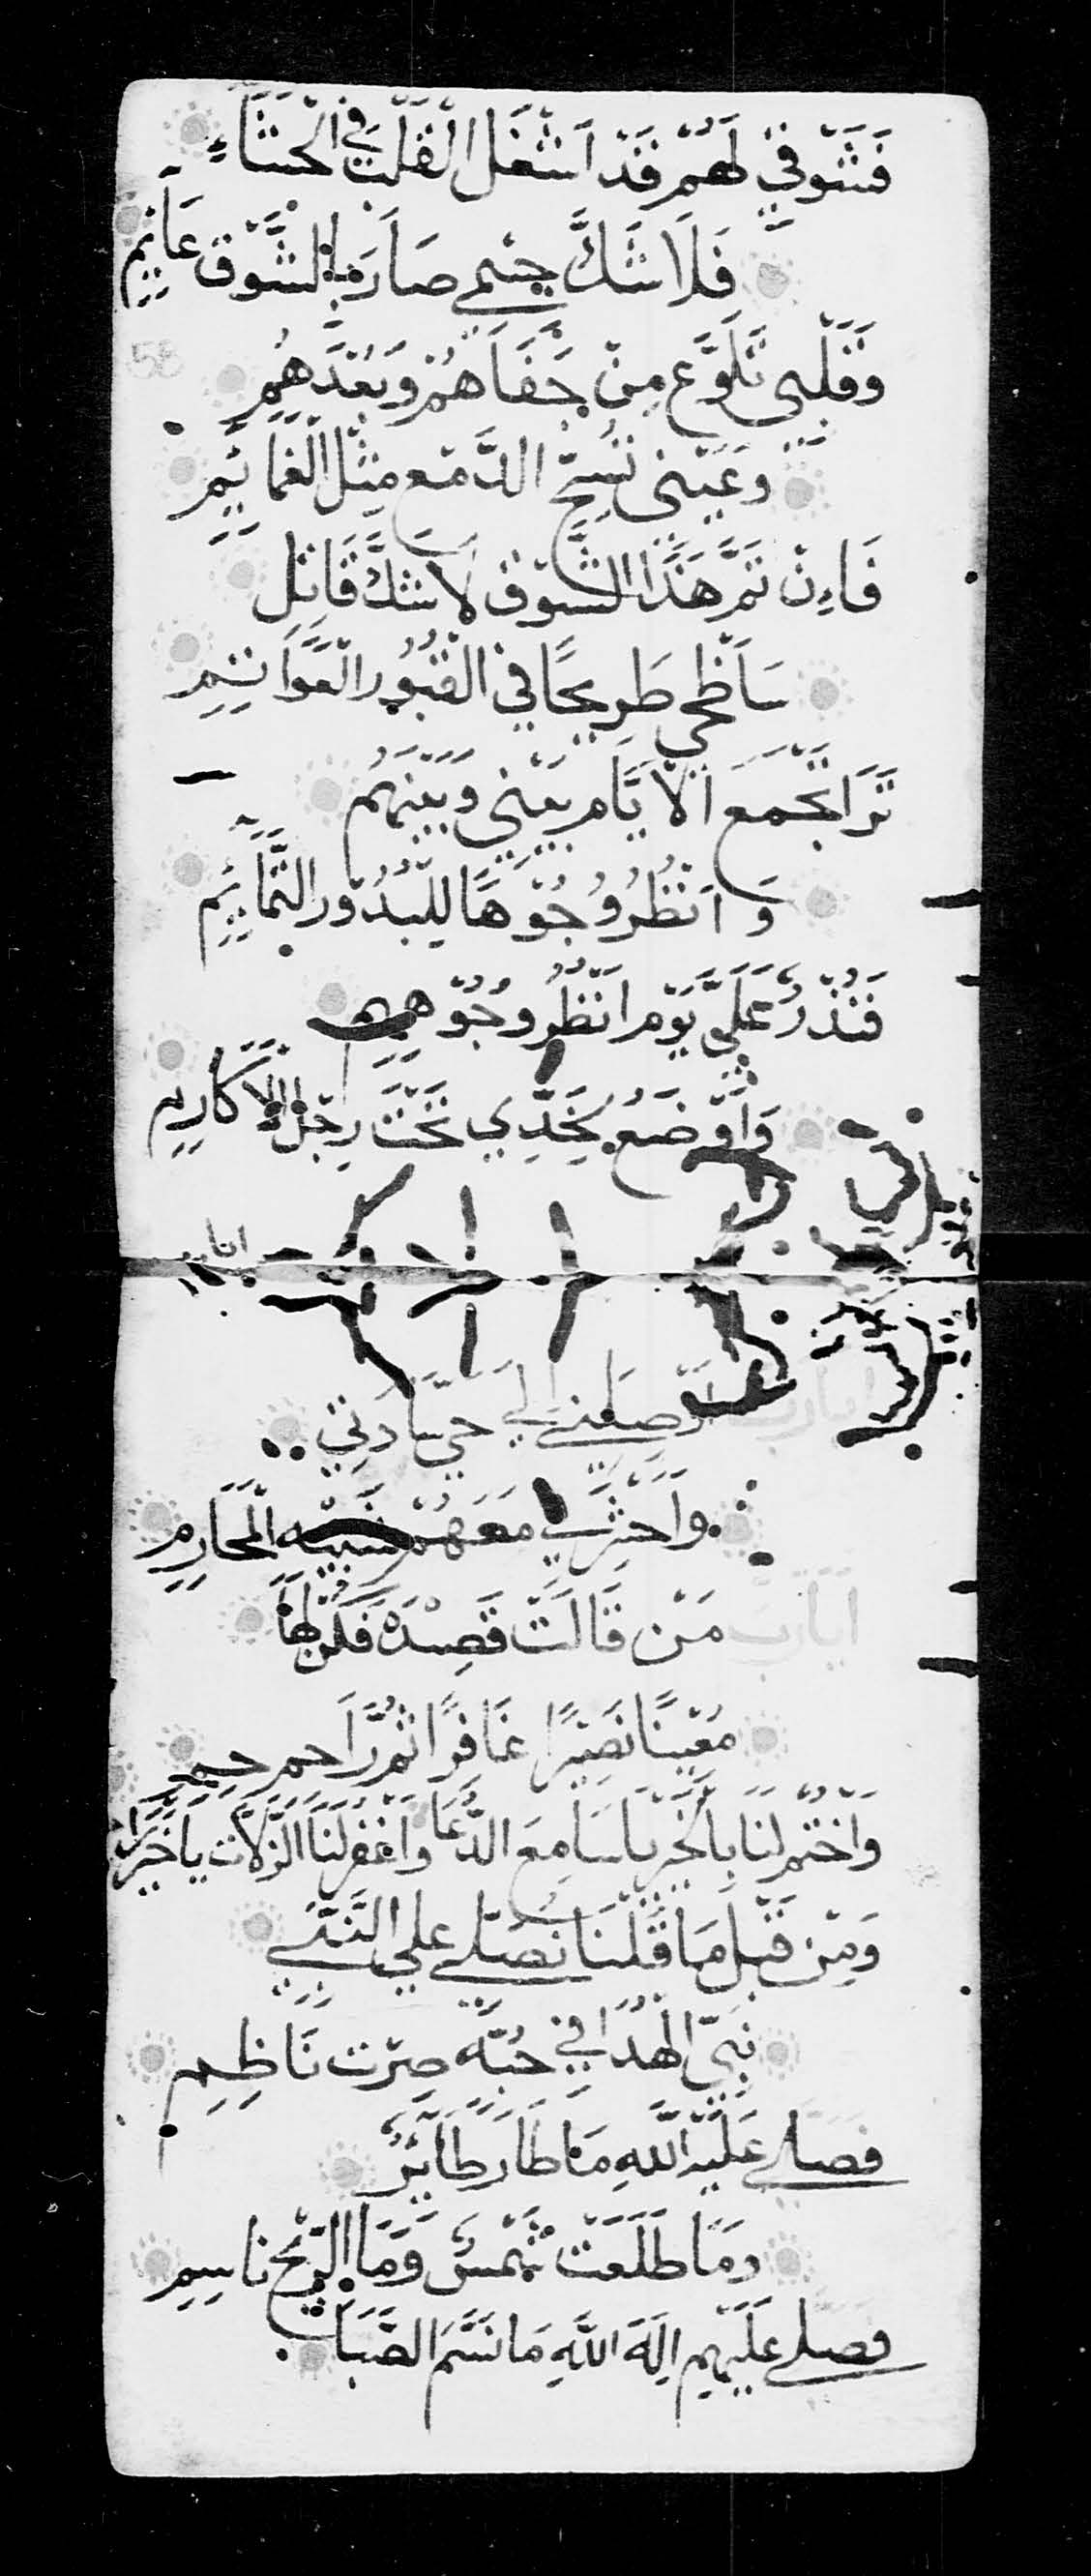 فَشَوقِي لَهُم قَد اَشغَل القَلبَ فِي الحَشَاءِ
فَلَا شَكَّ جِسمِي صَارَ بِالشَّوقِ عَايِمِ
58
وَقَلبِي تَلَوَّع مِن جَفَاهُم وَبُعدَهِم
وَعَينِي تَسِحّ الدَّمعَ مِثلَ الغَمَائِمِ
فَاءِن تَمَّ هَذَا الشَّوق لَا شَكَّ قَاتِلِ
سَاَضحِي طَرِيحًا فِي القُبُورِ العَوَاتِمِ
تَرَا تجمَعَ الاَيَّام بَينِي وَبَينَهُم
وَاَنظُر وُجُوهًا لِلبُدُور التَّمَائِمِ
فَنُذرٌ عَلَيَّ يَوم اَنظُر وُجُوهِهِم
وَاَوضَعُ بِخَدِّي تَحتَ رِجلِ الاَكَارِمِ
ايا رب اَوصلني الي حي سادتي
وَاحشرني مَعَهُم المَحَارِمِ
ايا رب مَن قَالَت قَصِيدَه فَكُن لَهَا
مُعِينًا نَصِيرًا غَافِرًا ثُمَّ رَاحِم
وَاختُم لَنَا بِالخَير يَا سَامِعَ الدُّعَا وَاغفِر لَنَا الزَّلَّات يَا خَير
وَمِن قَبلِ مَا قُلنَا نُصَلِّي عَلي النَّبِي
نَبِيّ الهُدَا فِي حُبِّه صِرت نَاظِمِ
فَصَلي عَلَيهِ اللَّهِ مَا طَارَ طَائِرٌ
وَمَا طَلَعَت شَمسٌ وَمَا الرِّيح نَاسِمِ
فَصَلي عَلَيهِم اِلَهَ اللَّهِ مَا نَسَّم الصَّبَا